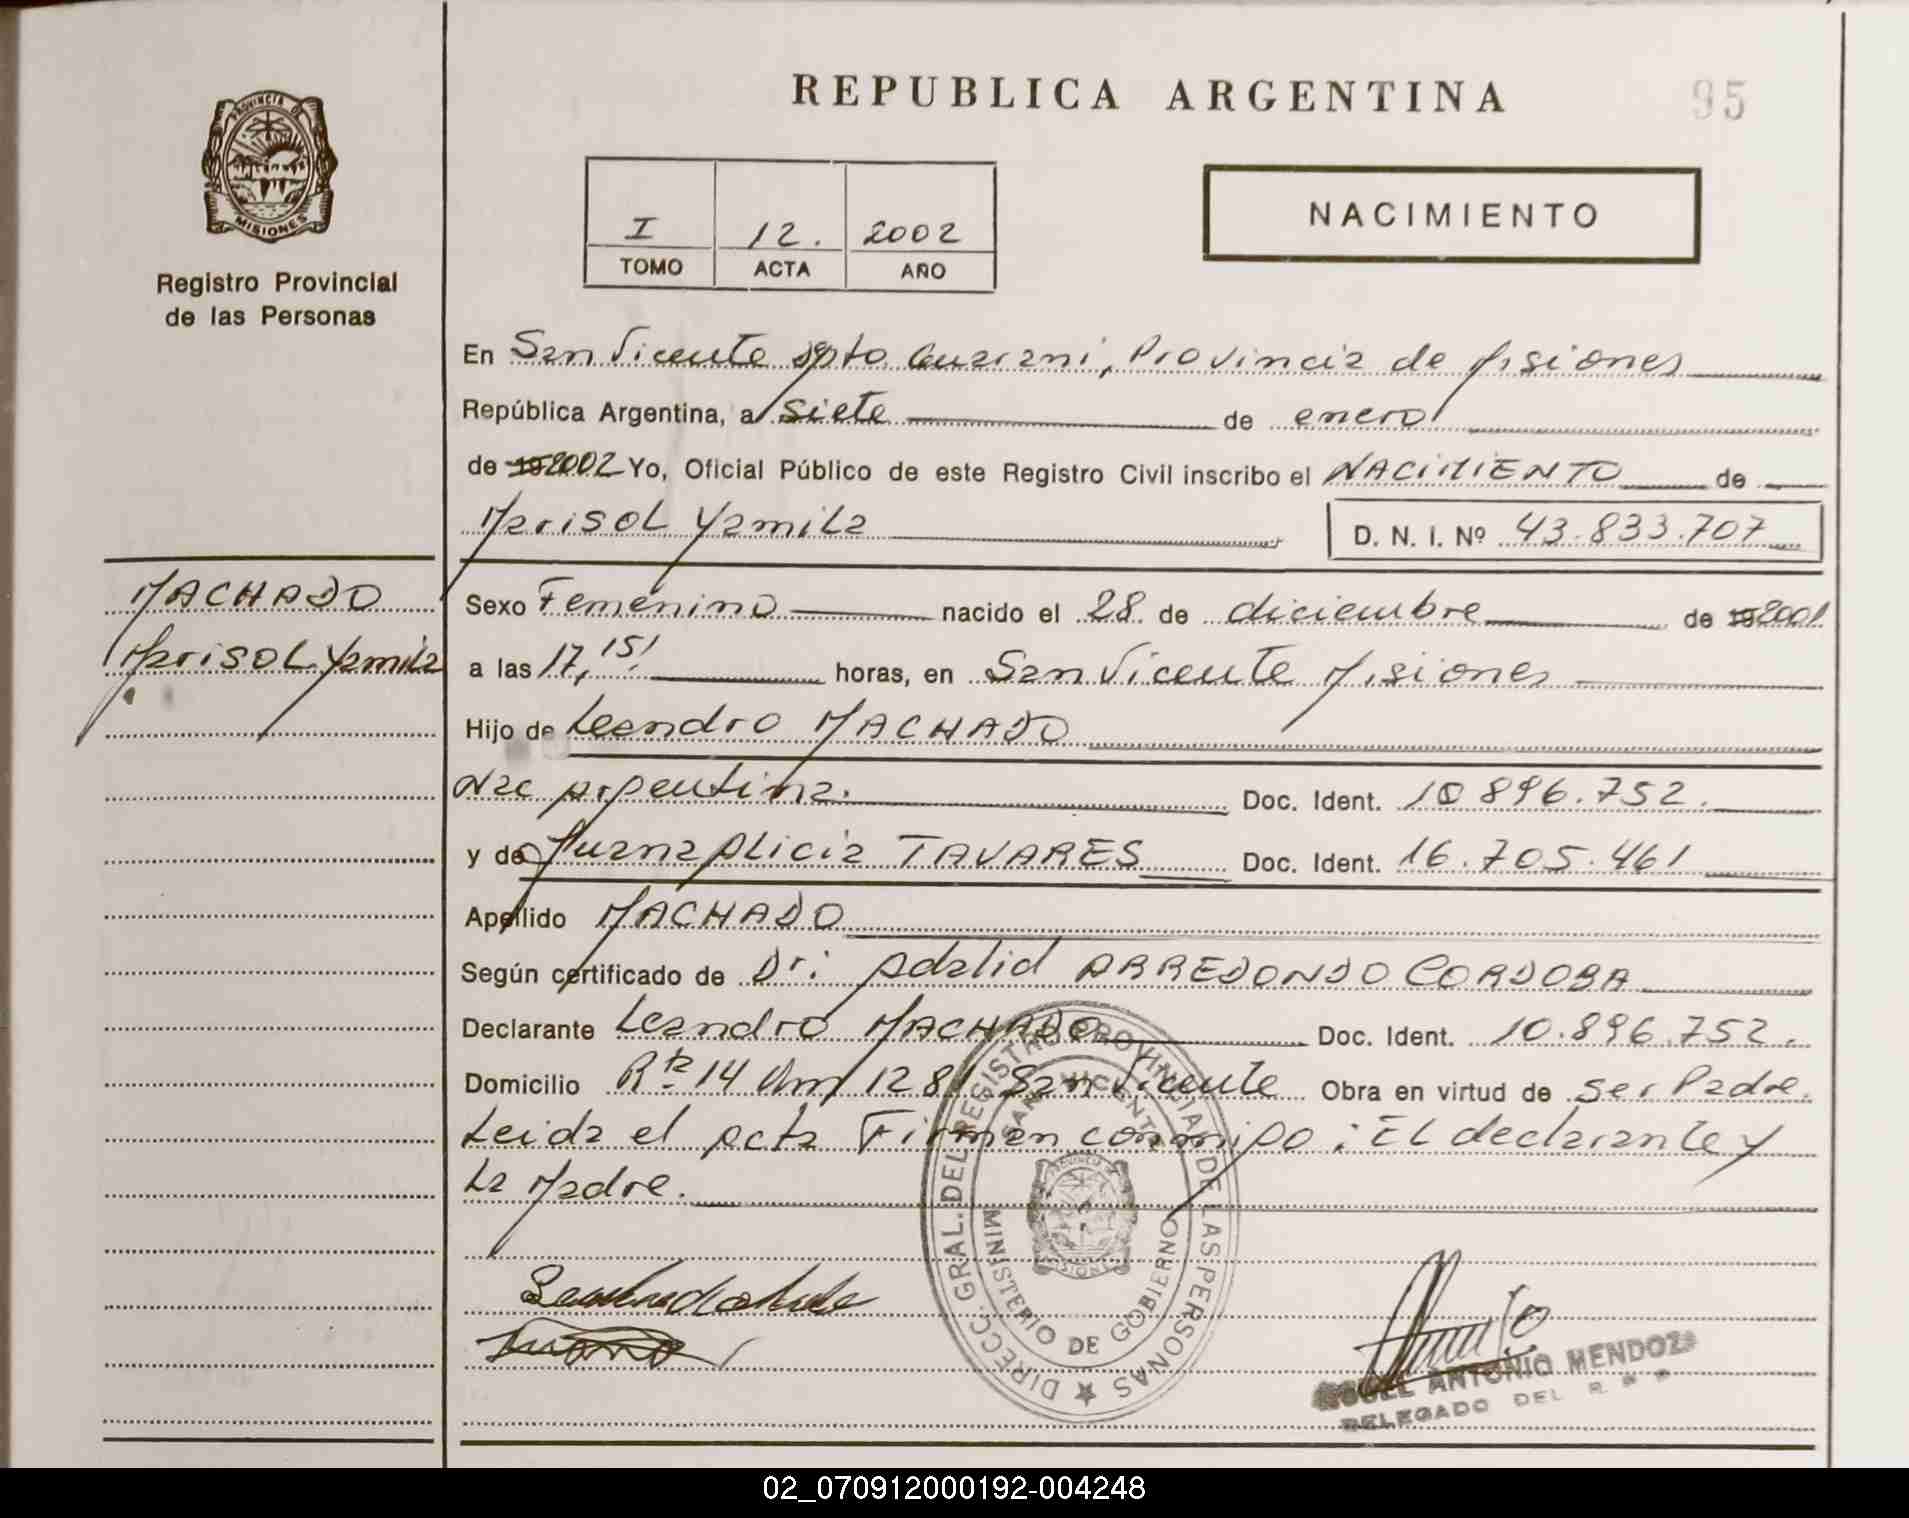 REPUBLICA ARGENTINA
95
PROVINCIA DE
MISIONES
Registro Provincial
de las Personas
I 12. 2002
TOMO ACTA AÑO
NACIMIENTO
En San Vicente Dpto. Guarani, Provincia de Misiones
República Argentina, a siete de enero
de 19 2002 Yo, Oficial Público de este Registro Civil inscribo el NACIMIENTO de
Marisol Yamila
D. N. I. Nº 43.833.707
MACHADO
Marisol Yamila
Sexo Femenino nacido el 28 de diciembre de 19 2001
a las 17,15' horas, en San Vicente Misiones
Hijo de Leandro MACHADO
Nac Argentina. Doc. Ident. 10.896.752.
y de Juana Alicia TAVARES Doc. Ident. 16.705.461
Apellido MACHADO
Según certificado de Dr: Adalid ARREDONDO CORDOBA
Declarante Leandro MACHADO Doc. Ident. 10.896.752.
Domicilio Rta 14 Km 1281 San Vicente Obra en virtud de ser Padre.
Leida el acta Firman conmigo: EL declarante y
La Madre.
DIRECC. GRAL. DEL REGISTRO PROVINCIAL DE LAS PERSONAS
SAN VICENTE
MINISTERIO DE GOBIERNO
ANTONIO MENDOZA
DELEGADO DEL R. P. P.
02_070912000192-004248